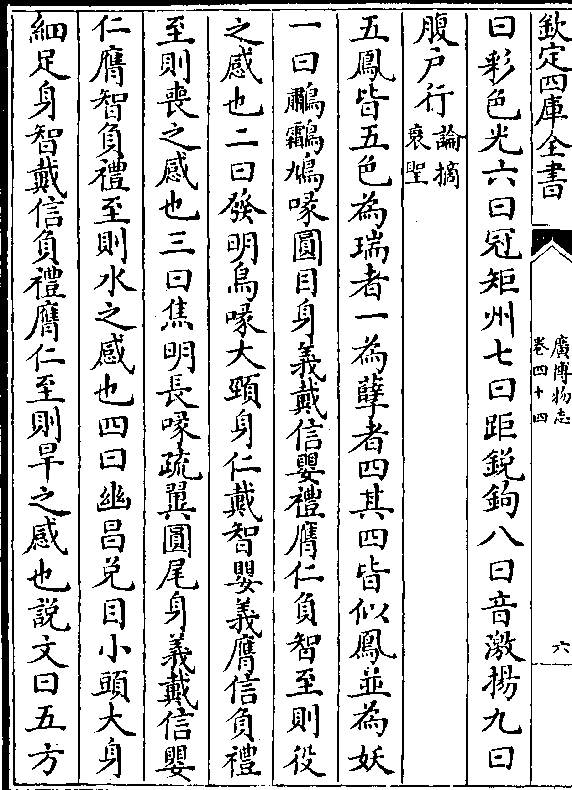 欽定四庫全書
廣博物志
卷四十四
六
曰彩色光六曰冠矩州七曰距銳鉤八曰音激揚九曰
腹户行論摘
衰聖
五鳳皆五色為瑞者一為孽者四其四皆似鳳並為妖
一曰鸘鳩喙圓目身義戴信嬰禮膺仁負智至則役
之感也二曰發明鳥喙大頸身仁戴智嬰義膺信負禮
至則喪之感也三曰焦明長喙疏翼圓尾身義戴信嬰
仁膺智負禮至則水之感也四曰幽昌兌目小頭大身
細足身智戴信負禮膺仁至則旱之感也說文曰五方